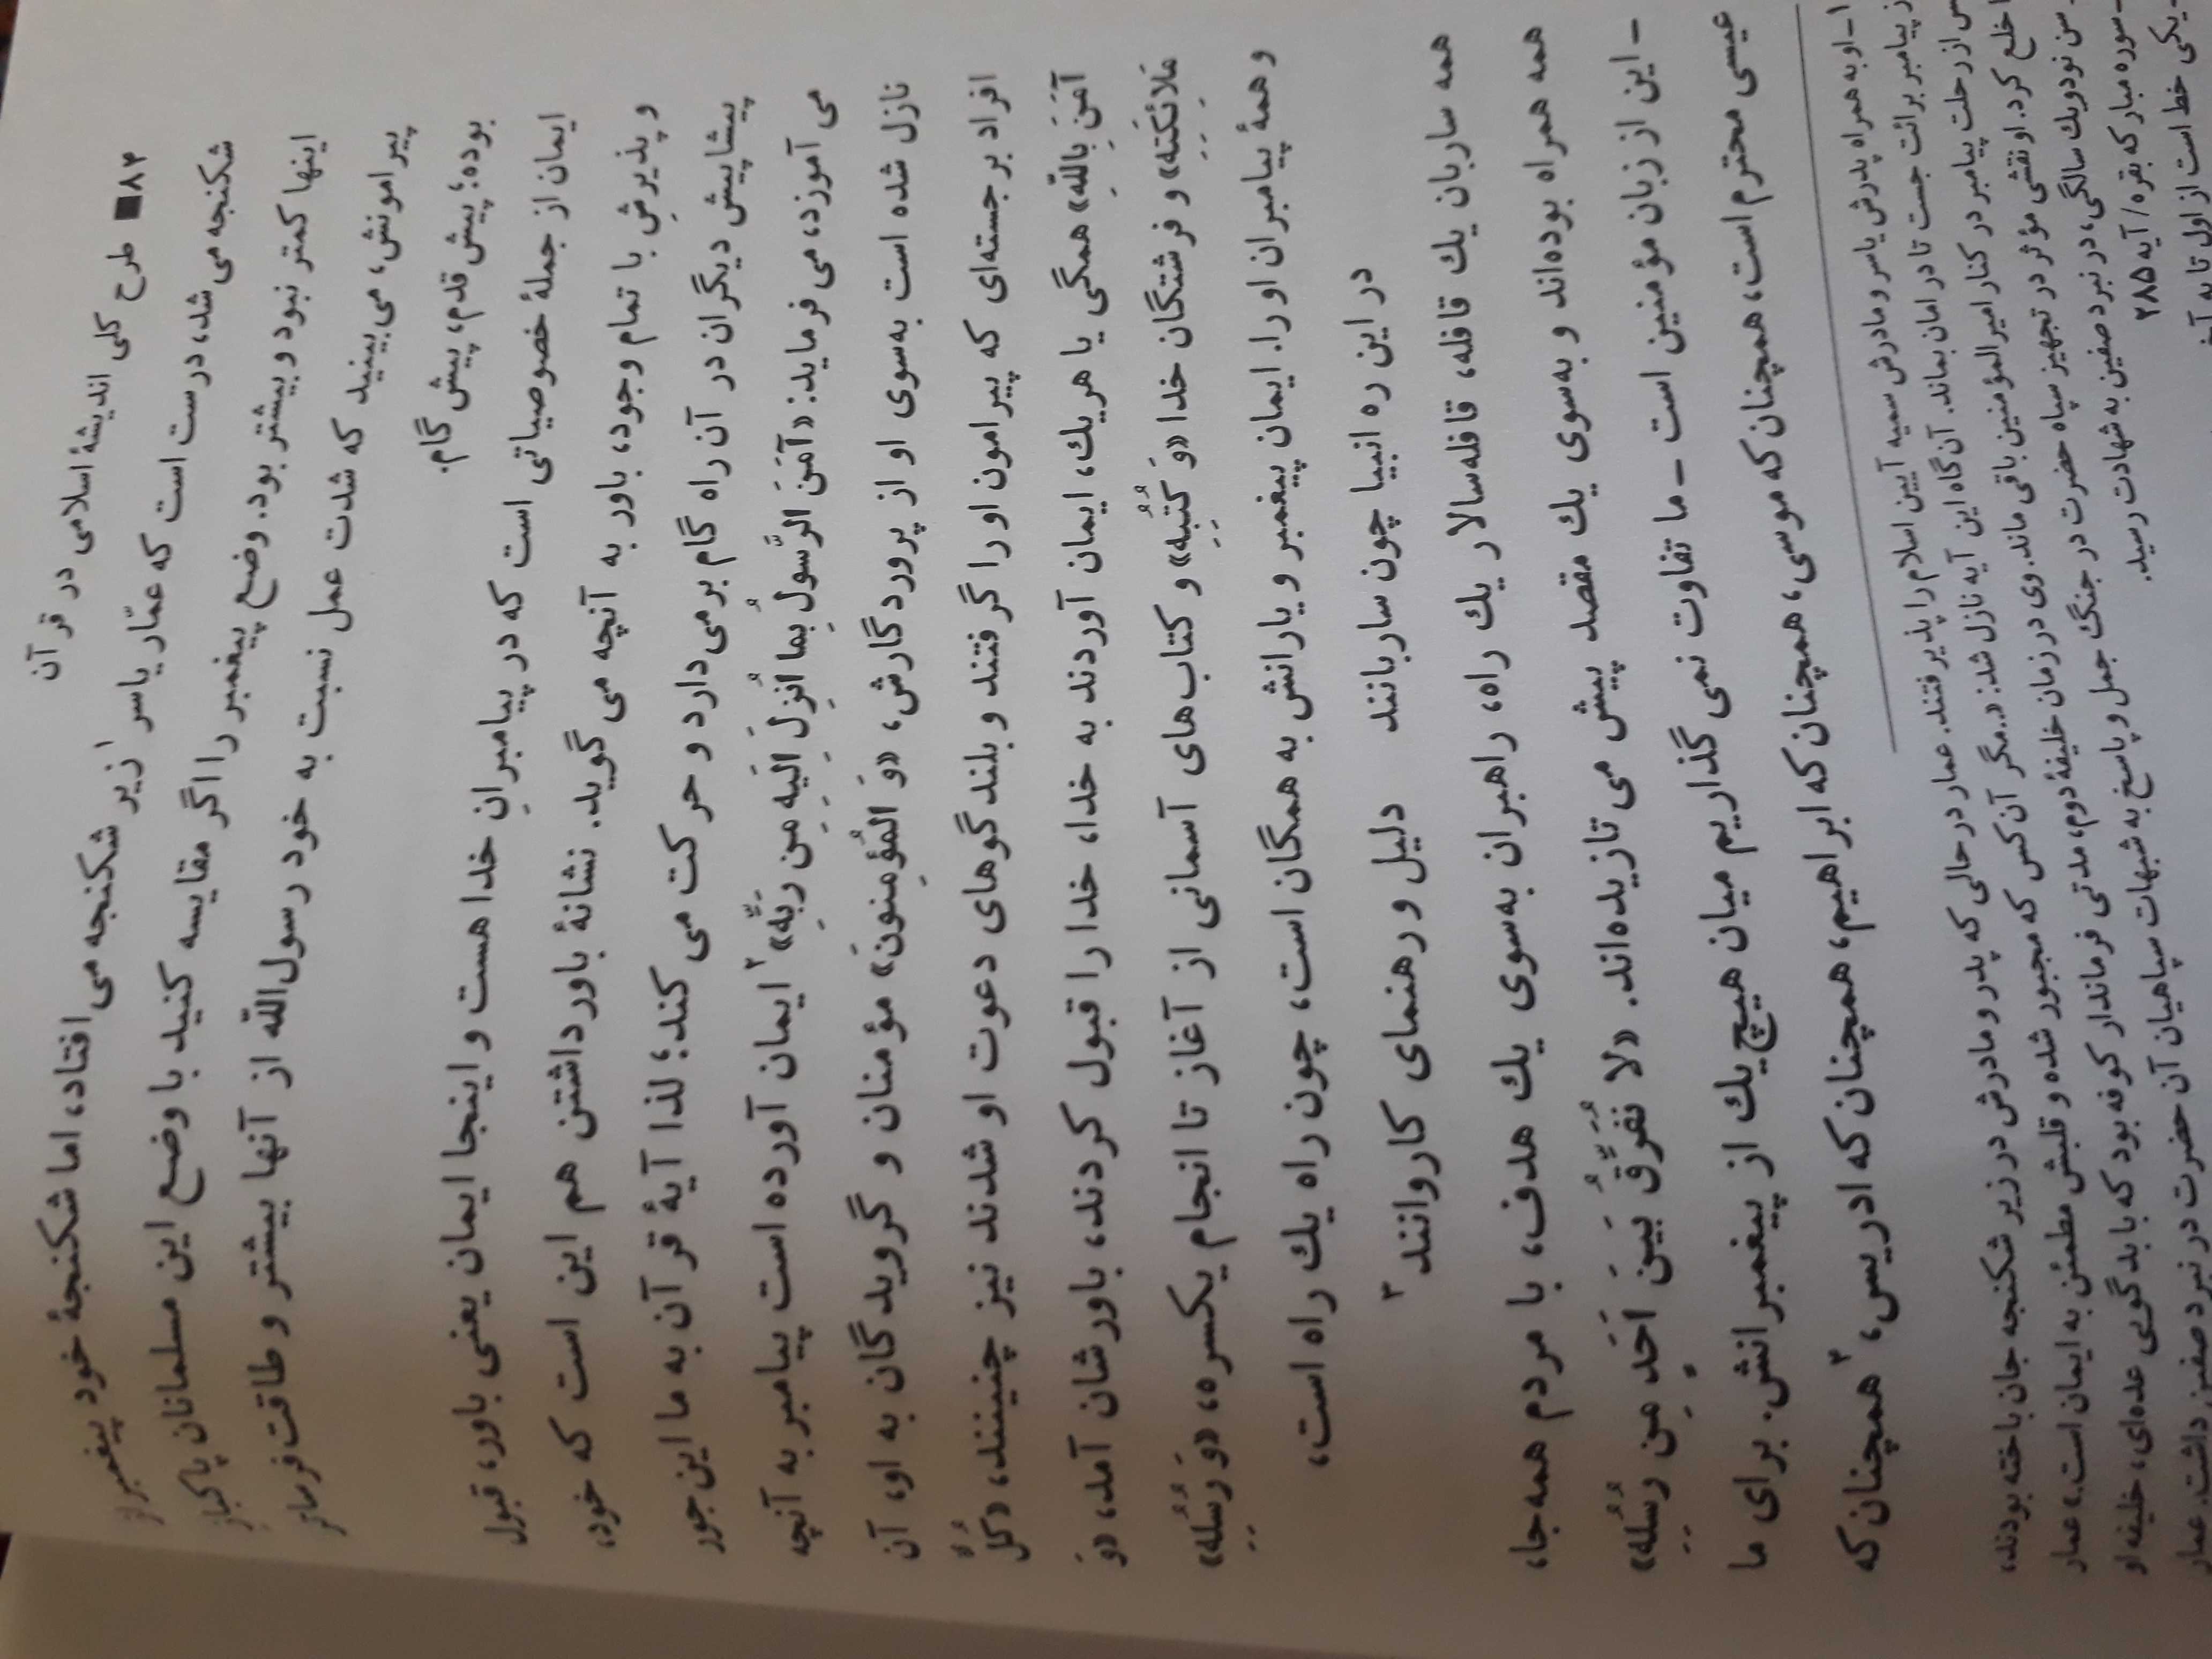 ۸۴ ■ طرح کلی اندیشهٔ اسلامی در قرآن
شکنجه می‌شد، درست است که عمّار یاسر۱ زیر شکنجه می‌افتاد، اما شکنجهٔ خود پیغمبر از
اینها کمتر نبود و بیشتر بود. وضع پیغمبر را اگر مقایسه کنید با وضع این مسلمانان پاکباز
پیرامونش، می‌بینید که شدت عمل نسبت به خود رسول‌الله از آنها بیشتر و طاقت‌فرساتر
بوده؛ پیش قدم، پیش گام.
ایمان از جملهٔ خصوصیاتی است که در پیامبرانِ خدا هست و اینجا ایمان یعنی باور، قبول
و پذیرشِ با تمام وجود، باور به آنچه می‌گوید. نشانهٔ باور داشتن هم این است که خود،
پیشاپیش دیگران در آن راه گام برمی‌دارد و حرکت می‌کند؛ لذا آیهٔ قرآن به ما این جور
می‌آموزد، می‌فرماید: «آمَنَ الرَّسولُ بِما اُنزِلَ اِلَیهِ مِن رَبِّهِ»۲ ایمان آورده است پیامبر به آنچه
نازل شده است به‌سوی او از پروردگارش، «وَ المُؤمِنونَ» مؤمنان و گرویدگان به او، آن
افراد برجسته‌ای که پیرامون او را گرفتند و بلندگوهای دعوت او شدند نیز چنینند، «کُلٌّ
آمَنَ بِاللهِ» همگی یا هریك، ایمان آوردند به خدا، خدا را قبول کردند، باورشان آمد، «وَ
مَلائِکَتِهِ» و فرشتگان خدا «وَ کُتُبِهِ» و کتاب‌های آسمانی از آغاز تا انجام یکسره، «وَ رُسُلِهِ»
و همهٔ پیامبران او را. ایمان پیغمبر و یارانش به همگان است، چون راه یك راه است،
در این ره انبیا چون ساربانند دلیل و رهنمای کاروانند۳
همه ساربان یك قافله، قافله‌سالار یك راه، راهبران به‌سوی یك هدف، با مردم همه‌جا،
همه همراه بوده‌اند و به‌سوی یك مقصد پیش می‌تازیده‌اند. «لا نُفَرِّقُ بَینَ اَحَدٍ مِن رُسُلِهِ»
- این از زبان مؤمنین است - ما تفاوت نمی‌گذاریم میان هیچ‌یك از پیغمبرانش. برای ما
عیسی محترم است، همچنان که موسی، همچنان که ابراهیم، همچنان که ادریس،۴ همچنان که
۱- او به همراه پدرش یاسر و مادرش سمیه آیین اسلام را پذیرفتند. عمار در حالی که پدر و مادرش در زیر شکنجه جان باخته بودند،
از پیامبر برائت جست تا در امان بماند. آن‌گاه این آیه نازل شد: «..مگر آن کس که مجبور شده و قلبش مطمئن به ایمان است.» عمار
پس از رحلت پیامبر در کنار امیرالمؤمنین باقی ماند. وی در زمان خلیفهٔ دوم، مدتی فرماندار کوفه بود که با بدگویی عده‌ای، خلیفه او
را خلع کرد. او نقشی مؤثر در تجهیز سپاه حضرت در جنگ جمل و پاسخ به شبهات سپاهیان آن حضرت در نبرد صفین داشت. عمار
سن نود و یك سالگی، در نبرد صفین به شهادت رسید.
سوره مبارکه بقره/ آیه ۲۸۵
یکی خط است از اول تا به